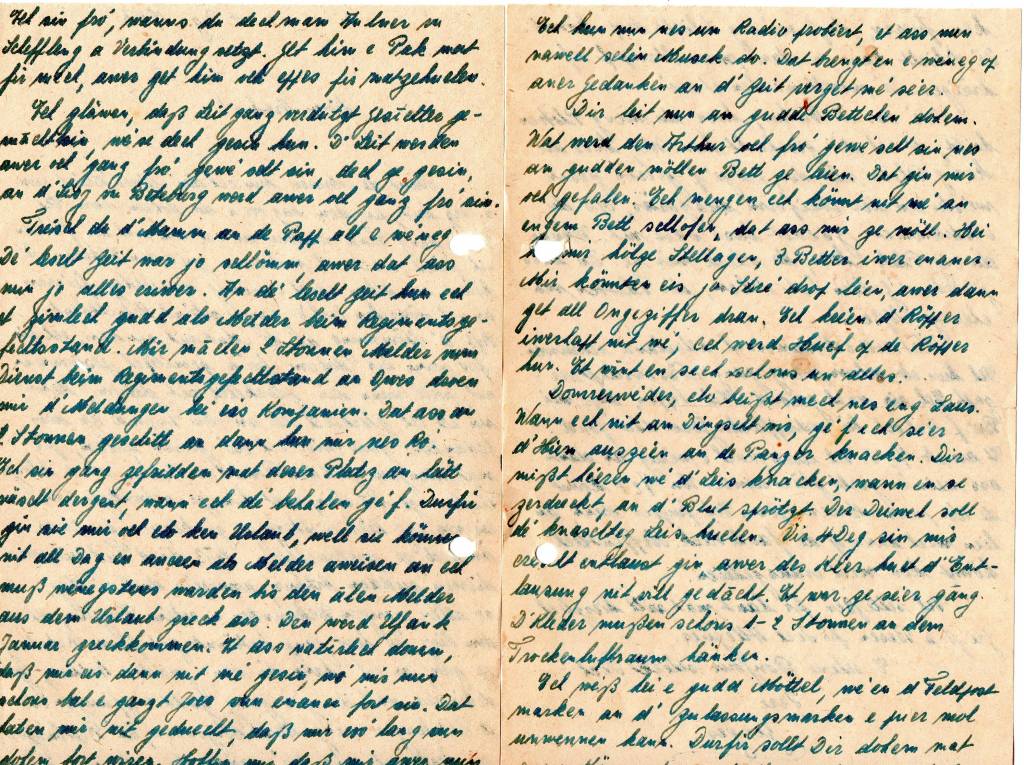 Ech sin fró, wanns du dech mam Hulner vu
Scheffleng a Verbindung setzt. Get him e Pak mat
fir mech, awer get him och eppes fir matzehuelen.
Ech gláwen, daß Leit gang verdutzt Gesiichter ge-
mácht sin, wé se dech gesin hun. D'Leit werden
awer och gang fró gewé scht sin, dech ze gesin,
an d' in Beteburg werd awer och gang fró sin.
Treischt du d'Mamm an de Papp alt e wéneg
Dé lescht Zeit war jo schlömm, awer dat ass
nun jo alles eriwer. An dé lescht Zeit hun ech
et zimlech gudd als Melder beim Regimentsge-
fechtsstand. Mir máchen 2 Stonnen Melder
Dinst beim Regimentsgefechtsstand an Owes droen
mir d'Meldungen bei eis Kompanien. Dat ass an
2 Stonnen geschitt an dann hun mir nes Ro.
Ech sin gang zefridden mat deser Plaatz an leit
náischt dergéint, wann ech dé behalen géif. Durfir
gin se mir och elo ken Urlaub, well se können
nit all Dag en aneren als Melder aweisen an ech
muß wénegstens warden bis den álen Melder
aus dem Urlaub zreck ass. Den werd Ufank
Januar zreckkommen. Et ass natirlech domm,
daß mir eis dann nit mé gesin, wó mir nun
schons bal e ganzt Joer vun enaner fort sin. Dat
haten mir nit geduecht, daß mir esó lang vun
dohem fort wiren. Hoffen mir, daß mir awer
Ech hun nun nes um Radio probéert, et ass nun
nawell schin Musek do. Dat brengt en e wéineg op
aner Gedanken an d' Zeit verget mé séier.
Dir leit nun an gudde Bettchen dohem.
Wat werd den Arthur och fró gewé scht sin nes
an gudden wöllen Bett ze leien. Dat gin mir
och gefalen. Ech mengen ech könnt nit mé an
engem Bett schlofen, dat ass mir ze wöll. Hei
hu mir hölze Stellagen, 3 Better iwer enaner.
Mir könnten eis jo Stré drop leien, awer dann
get all Ongeziffer dran. Ech heien d'Röpper
iwerhapt nit mé, ech werd Huef op de Röpper
hun. Et wint en sech schons un alles.
Donnerwéder, elo beißt mech nes eng Laus.
Wann ech nit am Dingscht wir, géif ech séier
d'Hiem ausgéen an de Panzer knacken. Dir
mißt héieren wé d'Leis knacken, wann en se
zerdréckt, an d' Blut sprötzt. Der Deiwel soll
dé knaschteg Leis huelen. Dis 4 Deg sin mir
eréischt entlaust gin awer des Kéier huet d'Ent-
lausung nit vill gedácht. Et war ze séier gang.
D'Kleder mußen schons 1-2 Stonnen an dem
Trockenluftraum hänken.
Ech weß hei e gudd Möttel, wé en d'Feldpost
marken an d' Zulassungsmarken e puer mol
unwennen kann. Durfir sollt Dir dohem mat